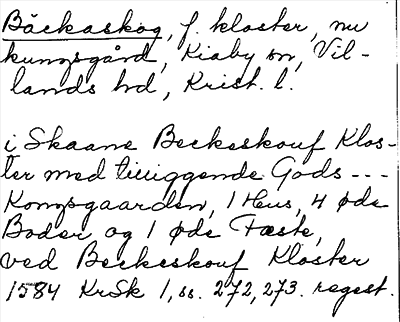 Bäckaskog, f. kloster, nu
kungsgård, Kiaby sn, Vil-
lands hd, Krist. l.
i Skaane Beckeskouf Klos-
ter med tilliggende Gods ---
Kongsgaarden, 1 Hus, 4 øde
Boder og 1 øde Fæste,
ved Beckeskouf Kloster
1584 KrSk 1, ss. 272, 273. regest.